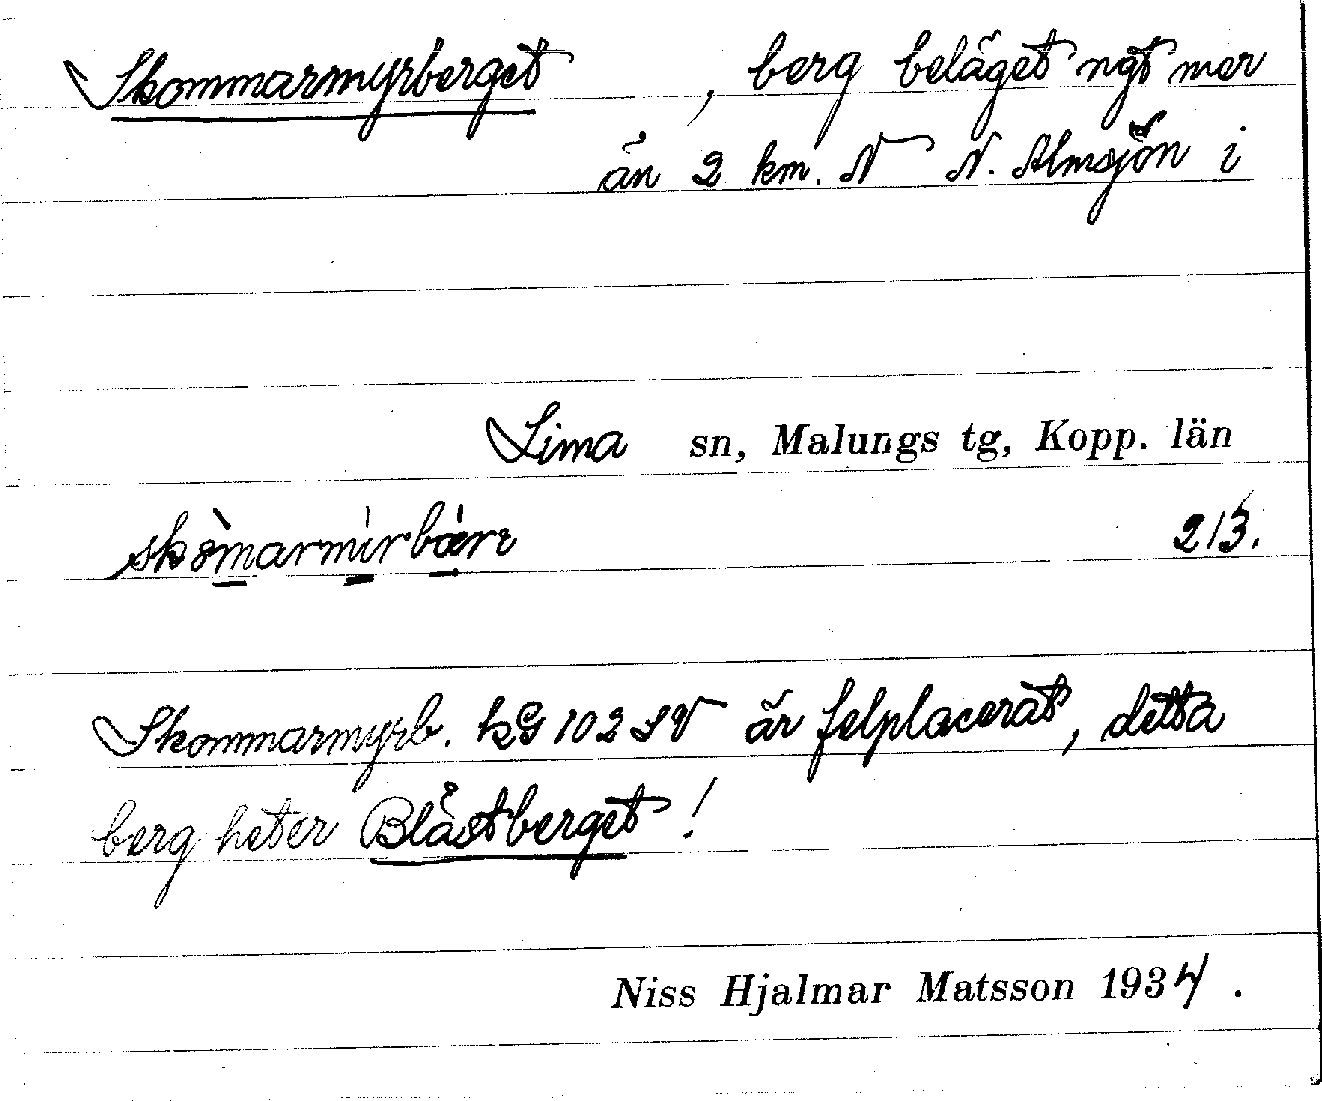 Skommarmyrberget, berg beläget ngt mer
än 2 km. N N. Almsjön i
Lima sn, Malungs tg, Kopp. län
213.
Skommarmyrb. kG 102 SV är felplacerat, detta
berg heter Blåstberget!
Niss Hjalmar Matsson 1934.